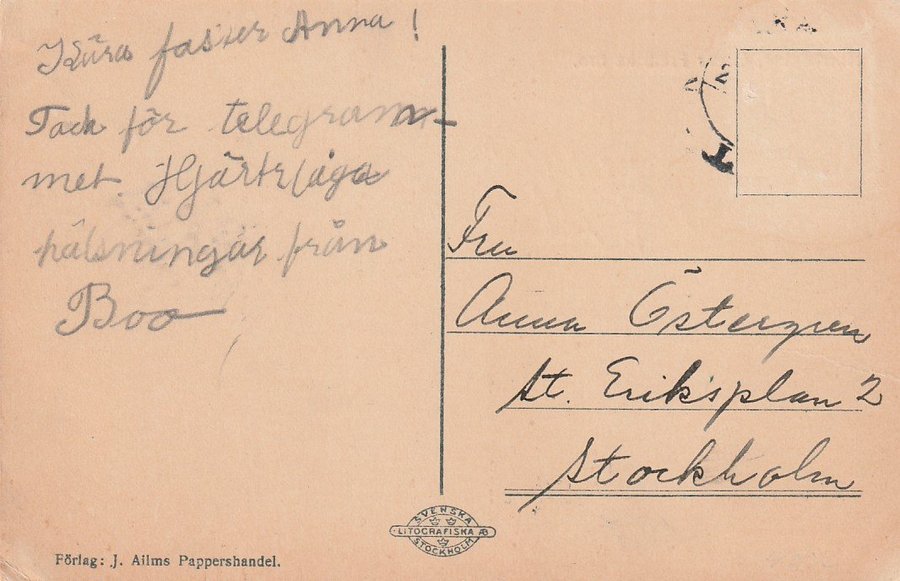 Kära faster Anna!
Tack för telegram-
met. Hjärtliga
hälsningar från
Boo
Fru
Anna Östergren
St. Eriksplan 2
Stockholm
SVENSKA
LITOGRAFISKA AB
STOCKHOLM
Förlag: J. Ailms Pappershandel.